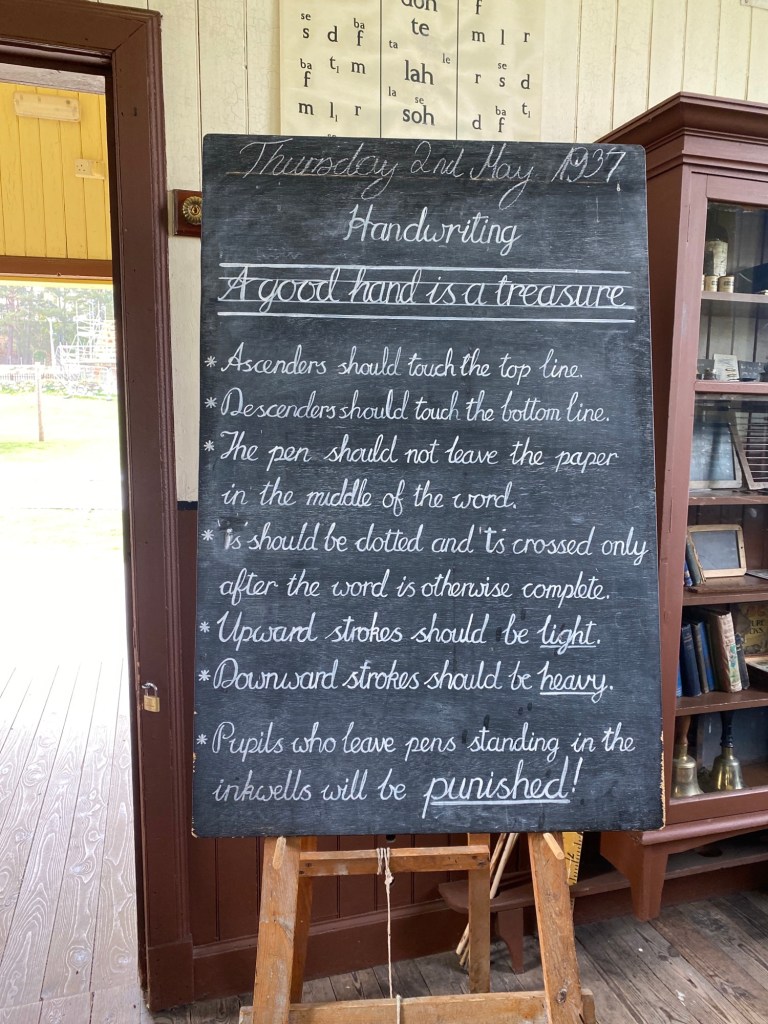 doh f
se ba
s d f te m l r
ta le
ba se
f t₁ m lah r s d
la se ba
m l₁ r soh d f t₁
Thursday 2nd May 1937
Handwriting
A good hand is a treasure
* Ascenders should touch the top line.
* Descenders should touch the bottom line.
* The pen should not leave the paper
in the middle of the word.
* 'is should be dotted and 't's crossed only
after the word is otherwise complete.
* Upward strokes should be light.
* Downward strokes should be heavy.
* Pupils who leave pens standing in the
inkwells will be punished!